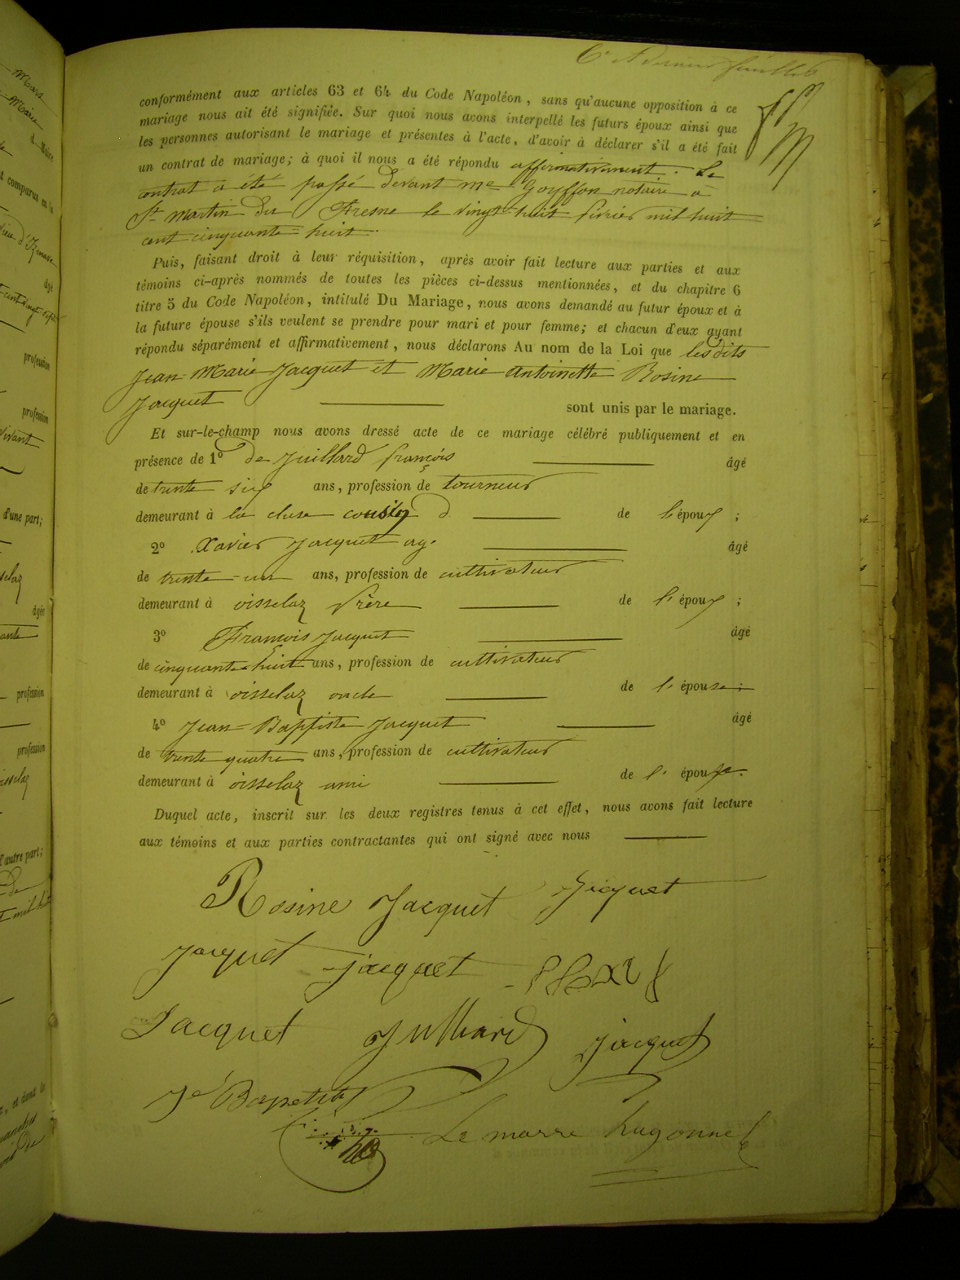 6e et dernier feuillet
conformément aux articles 63 et 64 du Code Napoléon, sans qu'aucune opposition à ce
mariage nous ait été signifiée. Sur quoi nous avons interpellé les futurs époux ainsi que
les personnes autorisant le mariage et présentes à l'acte, d'avoir à déclarer s'il a été fait
un contrat de mariage; à quoi il nous a été répondu affirmativement. Le
contrat a été passé devant me Goyffon notaire a
St martin du Fresne le vingt huit fevrier mil huit
cent cinquante huit.
Puis, faisant droit à leur réquisition, après avoir fait lecture aux parties et aux
témoins ci-après nommés de toutes les pièces ci-dessus mentionnées, et du chapitre 6
titre 5 du Code Napoléon, intitulé Du Mariage, nous avons demandé au futur époux et à
la future épouse s'ils veulent se prendre pour mari et pour femme; et chacun d'eux ayant
répondu séparément et affirmativement, nous déclarons Au nom de la Loi que les dits
Jean-Marie Jacquet et Marie Antoinette Rosine
Jacquet sont unis par le mariage.
Et sur-le-champ nous avons dressé acte de ce mariage célébré publiquement et en
présence de 1° de Juillard françois âgé
de trente six ans, profession de tourneur
demeurant à la cluse cousin de l'époux;
2° Xavier Jacquet âgé
de trente-un ans, profession de cultivateur
demeurant à oisselaz frère de l'époux;
3° François Jacquet âgé
de cinquante huit ans, profession de cultivateur
demeurant à oisselaz oncle de l'épouse;
4° Jean-Baptiste Jacquet âgé
de trente quatre ans, profession de cultivateur
demeurant à oisselaz ami de l'épouse.
Duquel acte, inscrit sur les deux registres tenus à cet effet, nous avons fait lecture
aux témoins et aux parties contractantes qui ont signé avec nous
Rosine Jacquet Jacquet
Jacquet Jacquet
Jacquet Julliard Jacquet
Le marre hugonnet